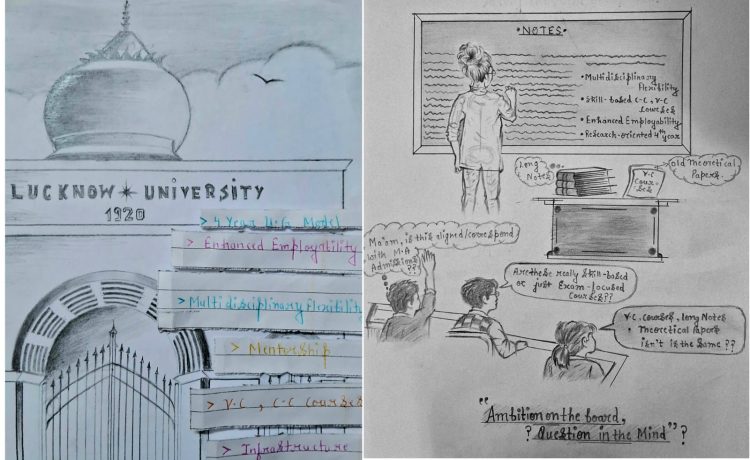 LUCKNOW * UNIVERSITY
1920
> 4 Year U.G Model
> Enhanced Employability
> Multidisciplinary Flexibility
> Mentorship
> V.C , C.C Courses
> Infrastructure
• NOTES •
• Multidisciplinary
Flexibility
• Skill-based C.C, V.C
Courses
• Enhanced Employability
• Research-oriented 4th year
Long
Notes
V.C
Cour-
ses
Old Theoretical
Papers
Ma'am, is this aligned/correspond
with M.A
Admissions
??
Are these really skill-based
or just Exam-focused
Courses??
V.C. courses, Long Notes
• Theoretical Papers
isn't is the same ??
"Ambition on the board,
? Question in the Mind" ?